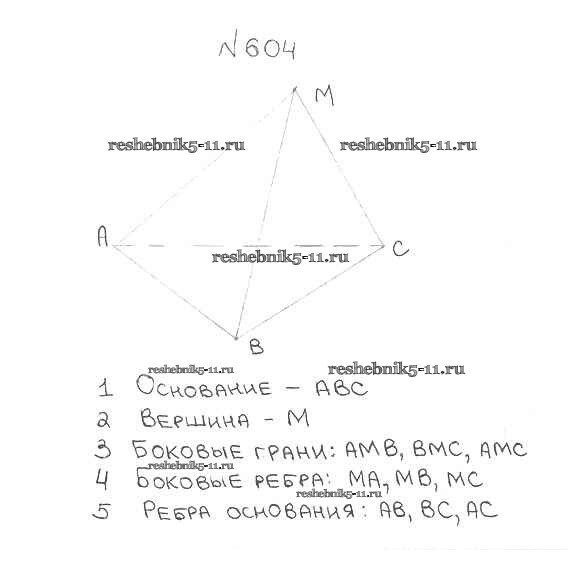 №604
M
reshebnik5-11.ru reshebnik5-11.ru
A
C
reshebnik5-11.ru
B
reshebnik5-11.ru reshebnik5-11.ru
1 Основание – ABC
2 Вершина - M
3 Боковые грани: AMB, BMC, AMC
reshebnik5-11.ru
4 Боковые ребра: MA, MB, MC
reshebnik5-11.ru
5 Ребра основания: AB, BC, AC